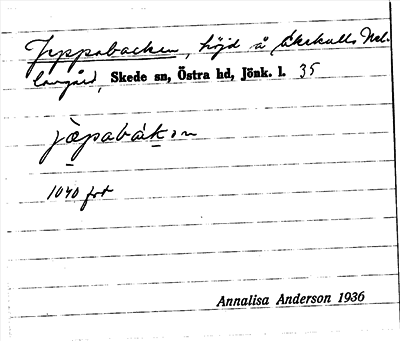 Jyppabacken, höjd å Äkekulls Mel-
langård, Skede sn, Östra hd, Jönk. l. 35
jæpabakən
1040 fot
Annalisa Anderson 1936